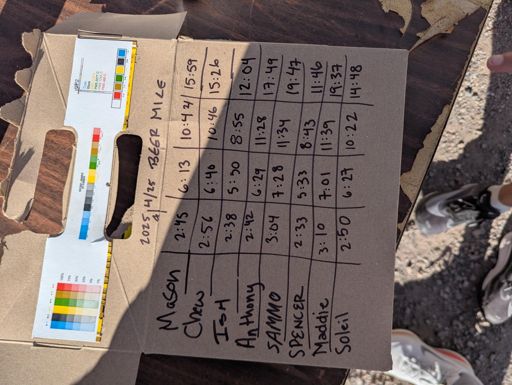 2025 4/25 BEER MILE
Mason 2:45 6:13 10:42 15:59
Chew 2:56 6:40 10:46 15:26
ISH 2:38 5:50 8:55 12:04
Anthony 2:42 6:29 11:28 17:49
SAMMO 3:04 7:28 11:34 19:47
SPENCER 2:33 5:33 8:43 11:46
Maddie 3:10 7:01 11:39 19:37
Soleil 2:50 6:27 10:22 14:48